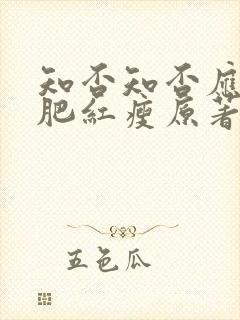 知否知否應
肥紅瘦原著
五色瓜